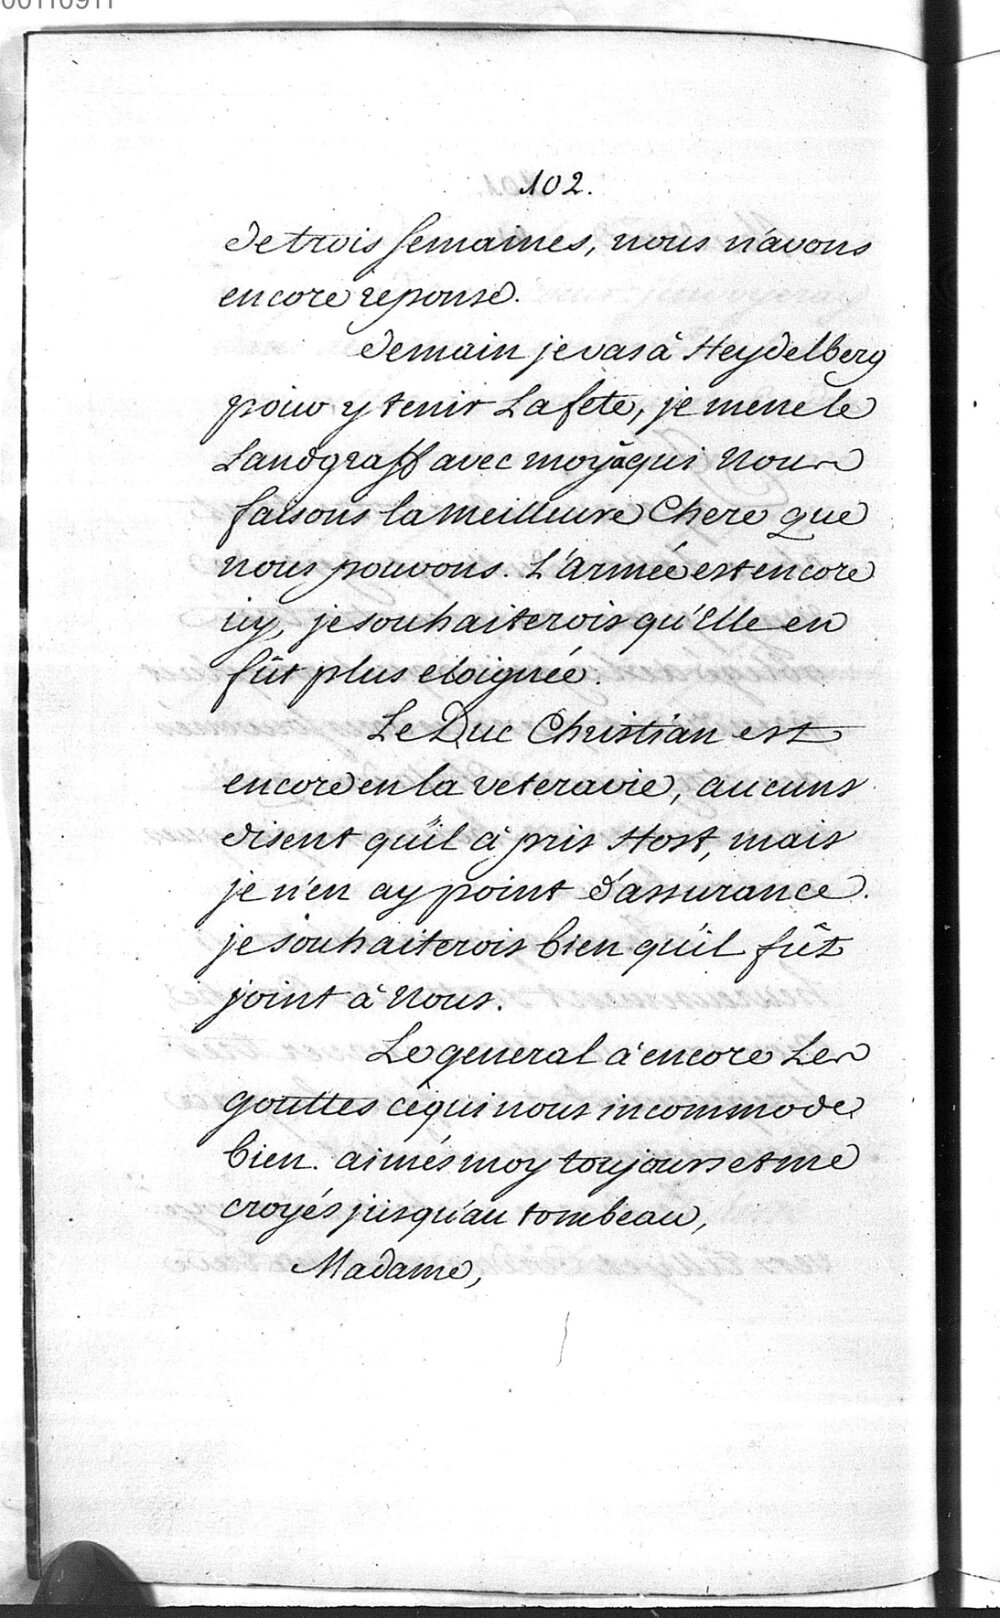 00110911
102.
de trois semaines, nous n'avons
encore reponse.
demain je vas à Heydelberg
pour y tenir La fete, je mene le
Landgraff avec moy à qui Nous
faisons la meilleure Chere que
nous pouvons. L'armée est encore
icy, je souhaiterois qu'Elle en
fût plus eloignée.
Le Duc Christian est
encore en la veteravie, aucuns
disent qu'il à pris Host, mais
je n'en ay point d'assurance.
je souhaiterois bien qu'il fût
joint à Nous.
Le general à encore Les
gouttes ce qui nous incommode
bien. aimés moy toujours et me
croyés jusqu'au tombeau,
Madame,